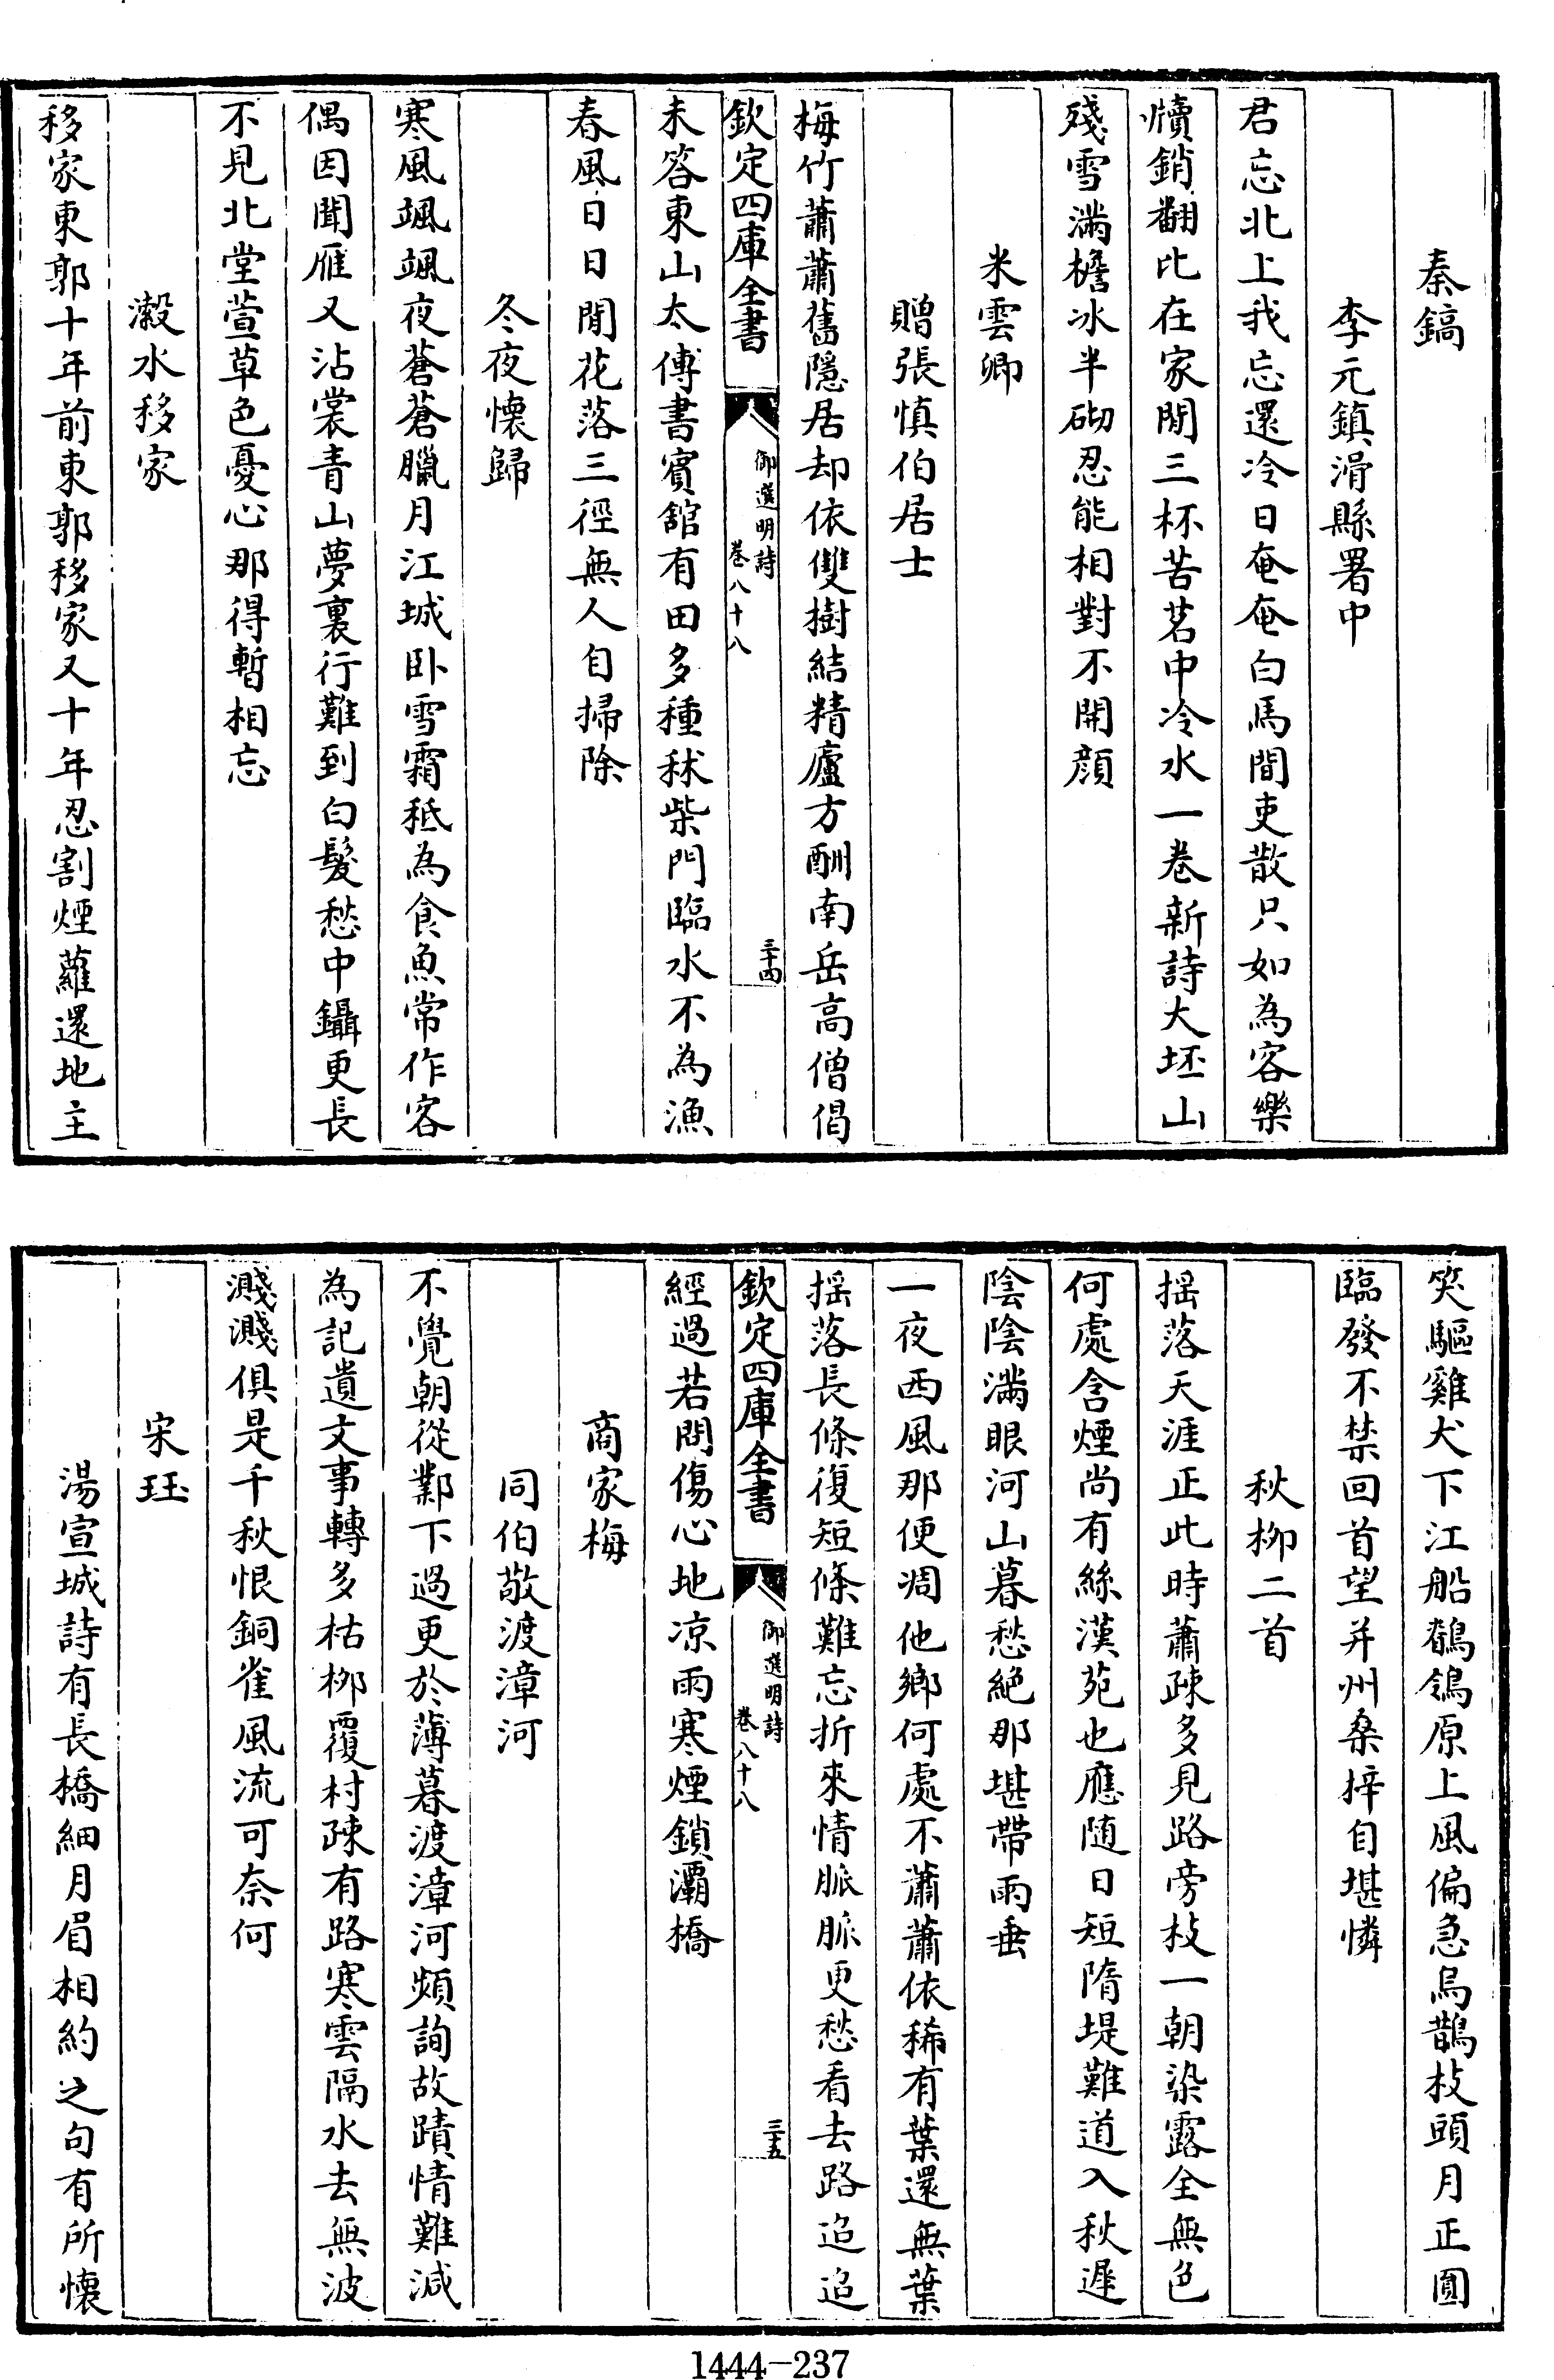 秦鎬
李元鎮滑縣署中
君忘北上我忘還冷日奄奄白馬間吏散只如為客樂
犢銷翻比在家閒三杯苦茗中冷水一卷新詩大坯山
殘雪滿檐冰半砌忍能相對不開顔
米雲卿
贈張慎伯居士
梅竹蕭蕭舊隱居却依雙樹結精廬方酬南岳高僧偈
欽定四庫全書
御選明詩
卷八十八
三十四
未答東山太傅書賓館有田多種秫柴門臨水不為漁
春風日日閒花落三徑無人自掃除
冬夜懷歸
寒風颯颯夜蒼蒼臘月江城卧雪霜秪為食魚常作客
偶因聞雁又沾裳青山夢裏行難到白髮愁中鑷更長
不見北堂萱草色憂心那得暫相忘
瀫水移家
移家東郭十年前東郭移家又十年忍割煙蘿還地主
笑驅雞犬下江船鶺鴒原上風偏急烏鵲枝頭月正圓
臨發不禁回首望并州桑梓自堪憐
秋柳二首
摇落天涯正此時蕭疎多見路旁枝一朝染露全無色
何處含煙尚有絲漢苑也應随日短隋堤難道入秋遲
陰陰滿眼河山暮愁絶那堪帶雨垂
一夜西風那便凋他鄉何處不蕭蕭依稀有葉還無葉
摇落長條復短條難忘折來情脈脈更愁看去路迢迢
欽定四庫全書
御選明詩
卷八十八
三十五
經過若問傷心地凉雨寒煙鎖灞橋
商家梅
同伯敬渡漳河
不覺朝從鄴下過更於薄暮渡漳河頻詢故蹟情難減
為記遺文事轉多枯柳覆村疎有路寒雲隔水去無波
濺濺俱是千秋恨銅雀風流可奈何
宋珏
湯宣城詩有長橋細月眉相約之句有所懷
1444-237